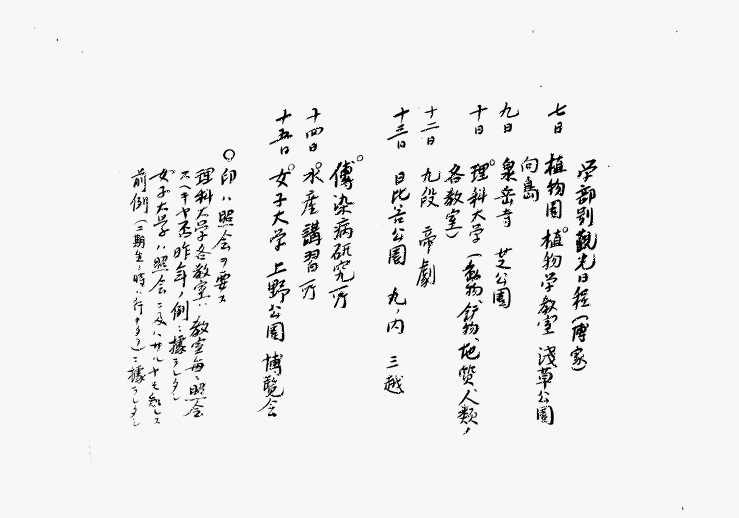 学部別観光日程(博家)
七日 植物園 植物学教室 浅草公園
向島
九日 泉岳寺 芝公園
十日 理科大学(動物、鉱物、地質、人類ノ
各教室)
十二日 九段 帝劇
十三日 日比谷公園 丸ノ内 三越
傳染病研究所
十四日 水産講習所
十五日 女子大学 上野公園 博覧会
○印ハ照会ヲ要ス
理科大学各教室ハ教室毎ニ照会
スヘキヤ否昨年ノ例ニ據ラレタシ
女子大学ハ照会ニ及ハサルヤモ知レス
前例(二期生ノ時ハ行キタリ)ニ據ラレタシ